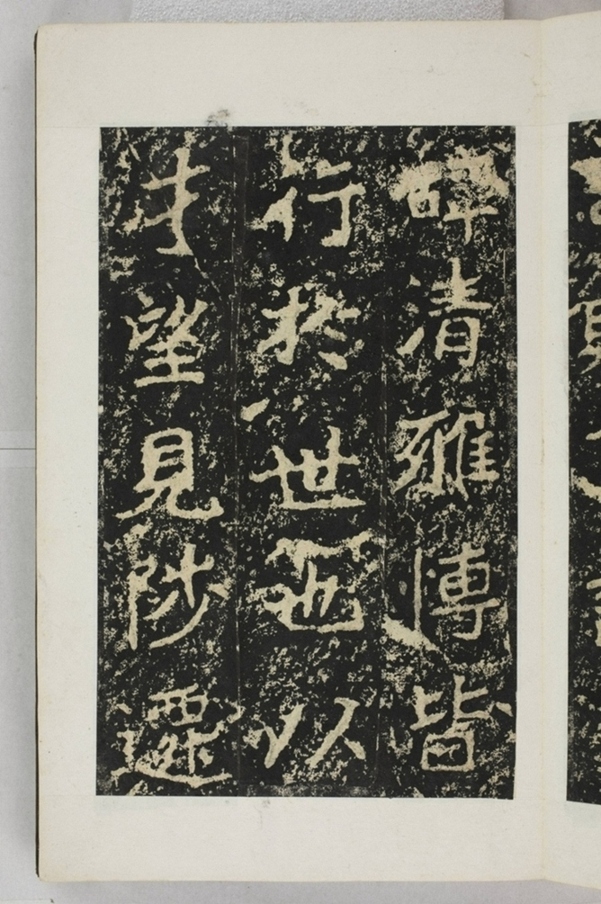 辞清雅博皆
行於世也以
才望見陟遷